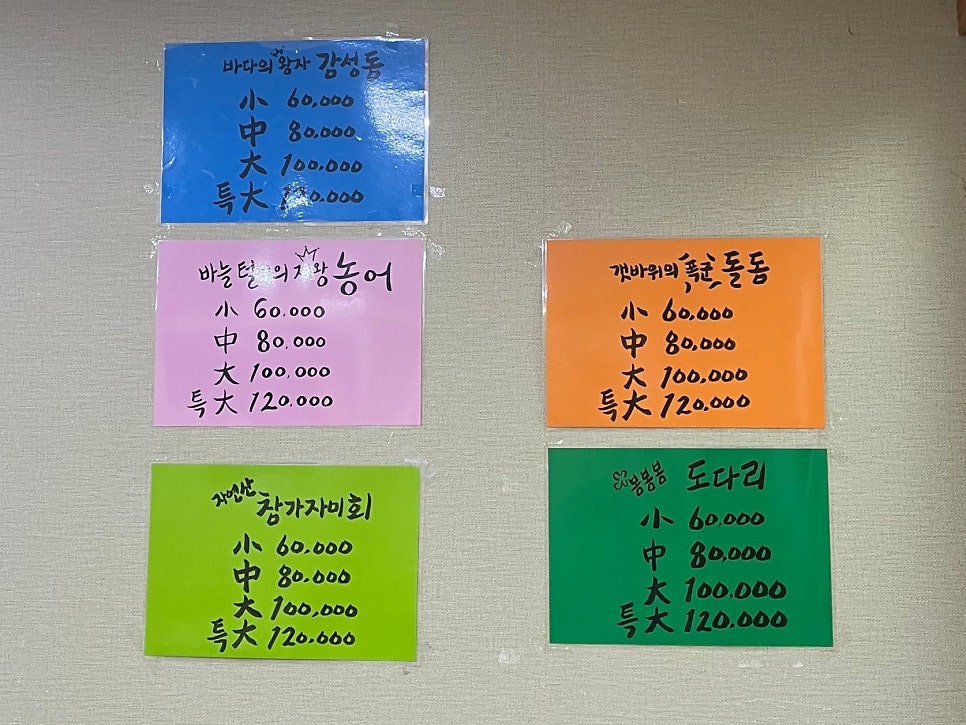 바다의 왕자 감성돔
小 60,000
中 80,000
大 100.000
특大 120.000
바늘털이의 제왕 농어
小 60.000
中 80.000
大 100,000
특大 120.000
자연산 참가자미회
小 60.000
中 80.000
大 100,000
특大 120.000
갯바위의 폭군 돌돔
小 60.000
中 80,000
大 100,000
특大 120.000
봄봄봄 도다리
小 60,000
中 80,000
大 100.000
특大 120.000